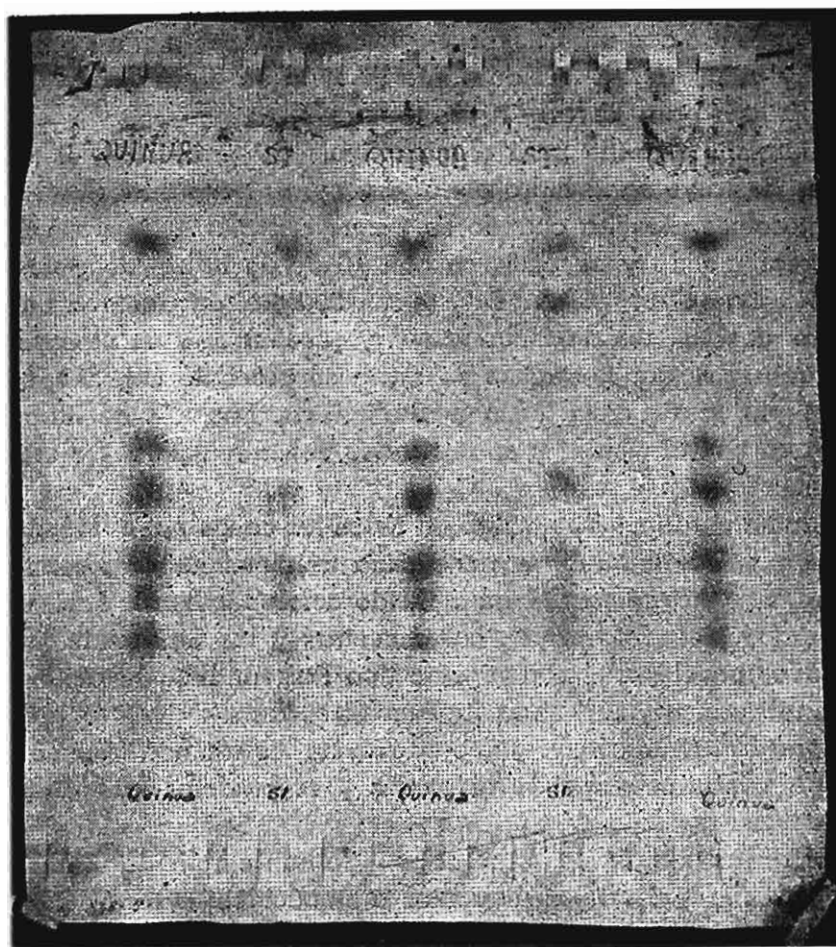 QUINUA ST QUINUA ST QUINUA
Quinua St Quinua St Quinua